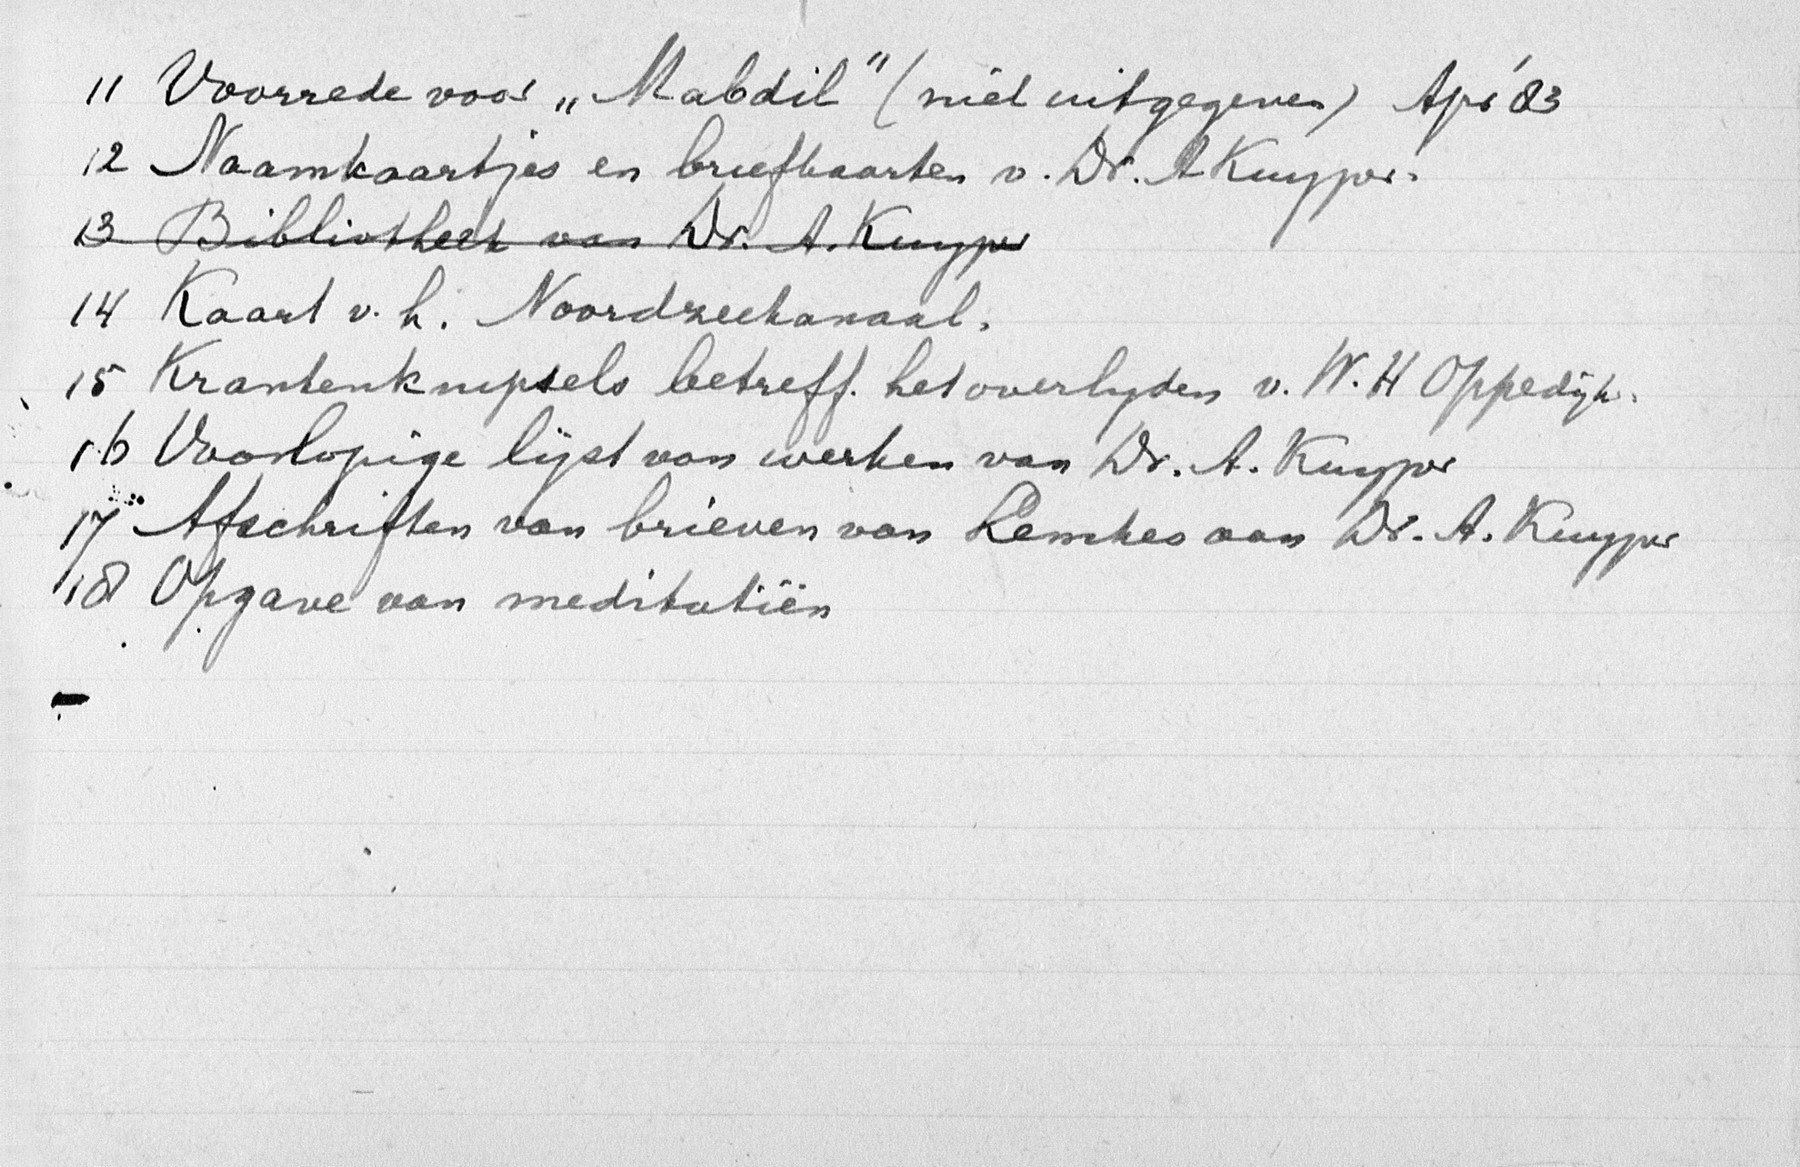 11 Voorrede voor „Mabdil” (niet uitgegeven) Apr '83
12 Naamkaartjes en briefkaarten v. Dr. A Kuyper.
13 Bibliotheek van Dr. A. Kuyper
14 Kaart v. h. Noordzeekanaal.
15 Krantenknipsels betreff. het overlyden v. W. H Oppedijk.
16 Voorlopige lijst van werken van Dr. A. Kuyper
17 Afschriften van brieven van Lemkes aan Dr. A. Kuyper
18 Opgave van meditatiën